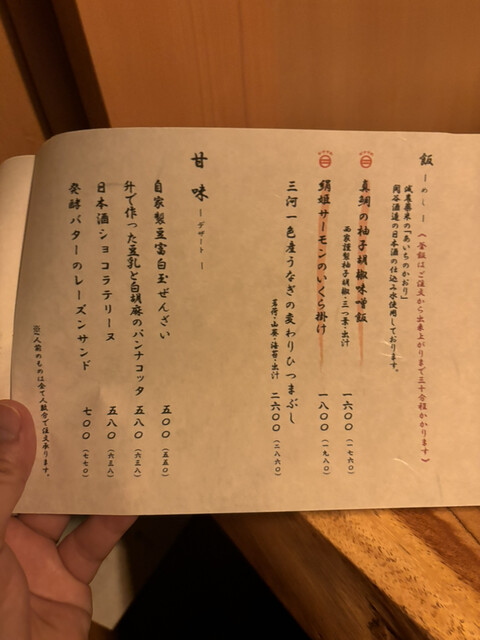 飯 ーめしー (釜飯はご注文から出来上がりまで三十分程かかります)
減農薬米の「あいちのかおり」
関谷酒造の日本酒の仕込み水使用しております。
真鯛の柚子胡椒味噌飯 一六〇〇(一七六〇)
西家謹製柚子胡椒・三つ葉・出汁
絹姫サーモンのいくら掛け 一八〇〇(一九八〇)
三河一色産うなぎの変わりひつまぶし 二六〇〇(二八六〇)
茗荷・山葵・海苔・出汁
甘味 ーデザートー
自家製豆富白玉ぜんざい 五〇〇(五五〇)
升で作った豆乳と白胡麻のパンナコッタ 五八〇(六三八)
日本酒ショコラテリーヌ 五八〇(六三八)
発酵バターのレーズンサンド 七〇〇(七七〇)
※二人前のものは全て人数分でご注文承ります。